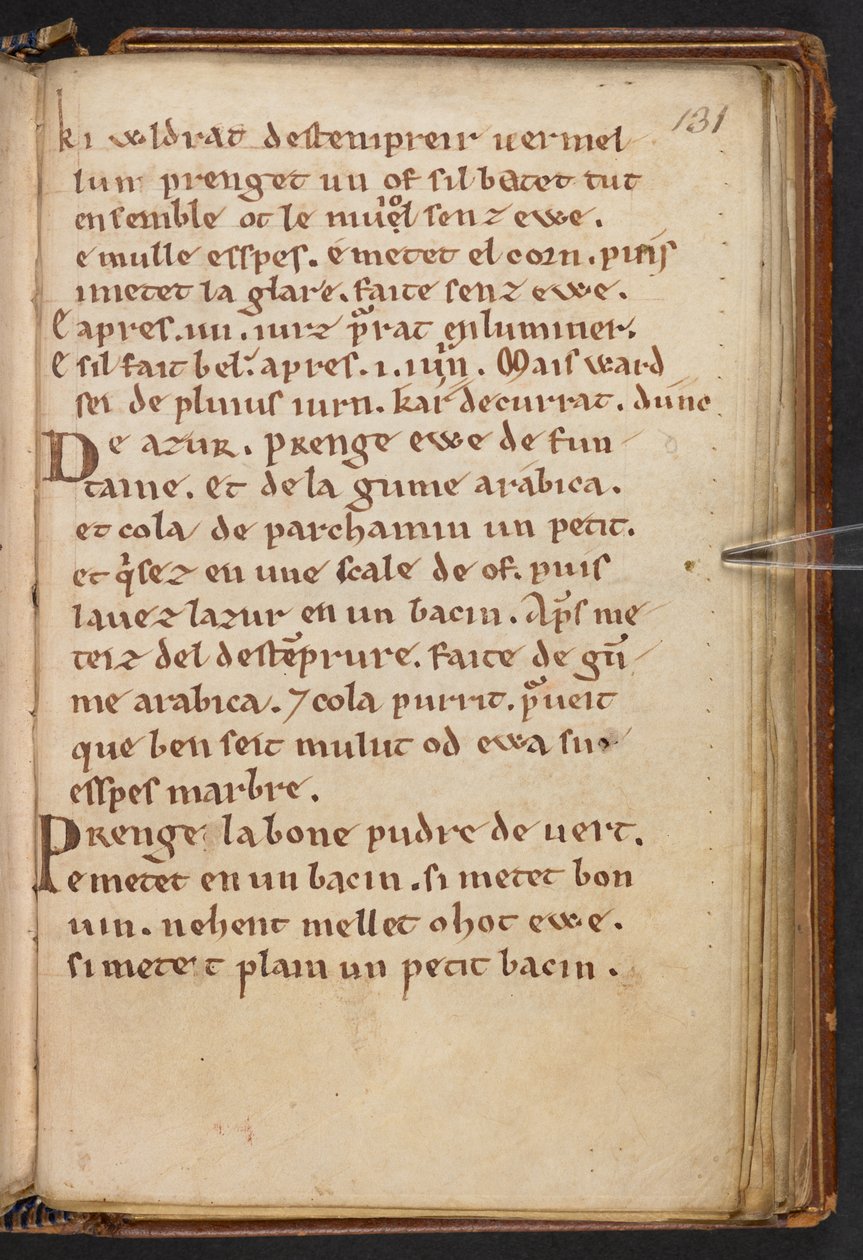 131
ki woldrat destempreir uermel
lun prenget un of sil batet tut
ensemble ot le muel senz ewe.
e mulle esspes. e metet el corn. puis
imetet la glare. faite senz ewe.
E apres .iiii. iurz p̃rat enluminer.
E sil fait bel. apres .i. iurn. Mais ward
sei de pluius iurn. kar decurrat. dunc
De azur. prenge ewe de fun
taine. et de la gume arabica.
et cola de parchamin un petit.
et q̃sez en une scale de of. puis
lauez lazur en un bacin. Ap̃s me
teiz del destẽprure. faite de gũ
me arabica. ⁊ cola purrit. p̃ueit
que ben seit mulut od ewa su
esspes marbre.
Prenge la bone pudre de uert.
e metet en un bacin. si metet bon
uin. nehent mellet o hot ewe.
si metet plain un petit bacin.